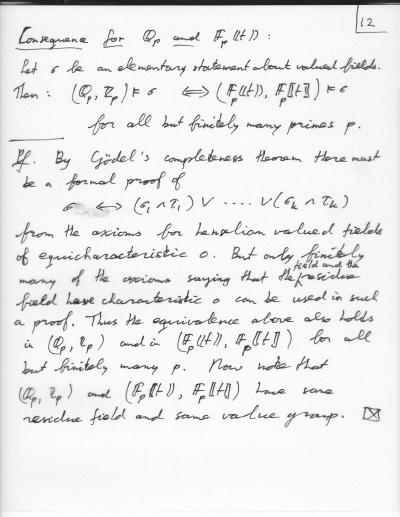 12
Consequence for ℚ_p and 𝔽_p((t)) :
Let σ be an elementary statement about valued fields.
Then : (ℚ_p, ℤ_p) ⊨ σ ⟺ (𝔽_p((t)), 𝔽_p[[t]]) ⊨ σ
for all but finitely many primes p.
Pf. By Gödel's completeness theorem there must
be a formal proof of
σ ⟷ (σ_1 ∧ τ_1) ∨ ..... ∨ (σ_k ∧ τ_k)
from the axioms for henselian valued fields
of equicharacteristic 0. But only finitely
many of the axioms saying that the field and the residue
field have characteristic 0 can be used in such
a proof. Thus the equivalence above also holds
in (ℚ_p, ℤ_p) and in (𝔽_p((t)), 𝔽_p[[t]]) for all
but finitely many p. Now note that
(ℚ_p, ℤ_p) and (𝔽_p((t)), 𝔽_p[[t]]) have same
residue field and same value group. ☒